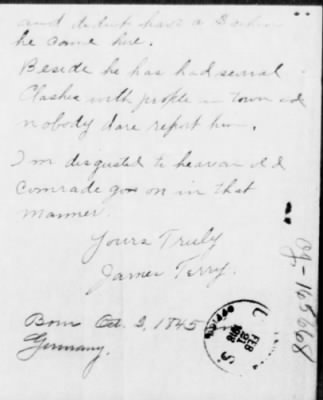 and didnt have a
he come here.
Beside he has had several
Clashes with people in town and
nobody dare report him.
I'm disgusted to hear an old
Comrade go on in that
manner.
Yours Truly
James Terry.
Born Oct. 3, 1845 in
Germany.
OFFICE
FEB
21
1918
165668